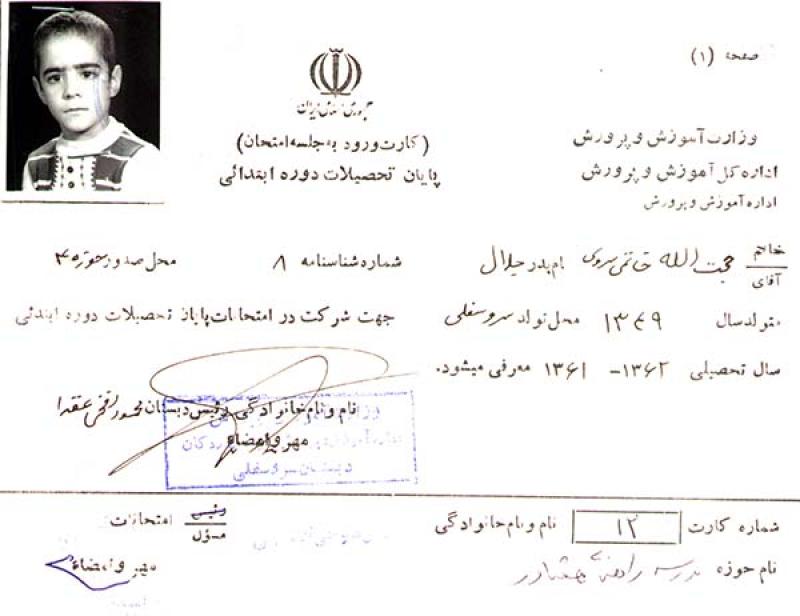 صفحه (۱)
جمهوری اسلامی ایران
وزارت آموزش و پرورش
(کارت ورود به جلسه امتحان)
اداره کل آموزش و پرورش
پایان تحصیلات دوره ابتدائی
اداره آموزش و پرورش
خانم
آقای حجت الله خاتمی سروی نام پدر جلال شماره شناسنامه ۸ محل صدور حوزه ۴
متولد سال ۱۳۴۹ محل تولد سروسفلی جهت شرکت در امتحانات پایان تحصیلات دوره ابتدئی
سال تحصیلی ۱۳۶۲- ۱۳۶۱ معرفی میشود.
نام و نام خانوادگی رئیس دبستان محمود
مهر و امضاء
دبستان سروسفلی
شماره کارت ۱۲ نام و نام خانوادگی رئیس امتحانات
مسؤل
نام حوزه مدرسه مهر و امضاء